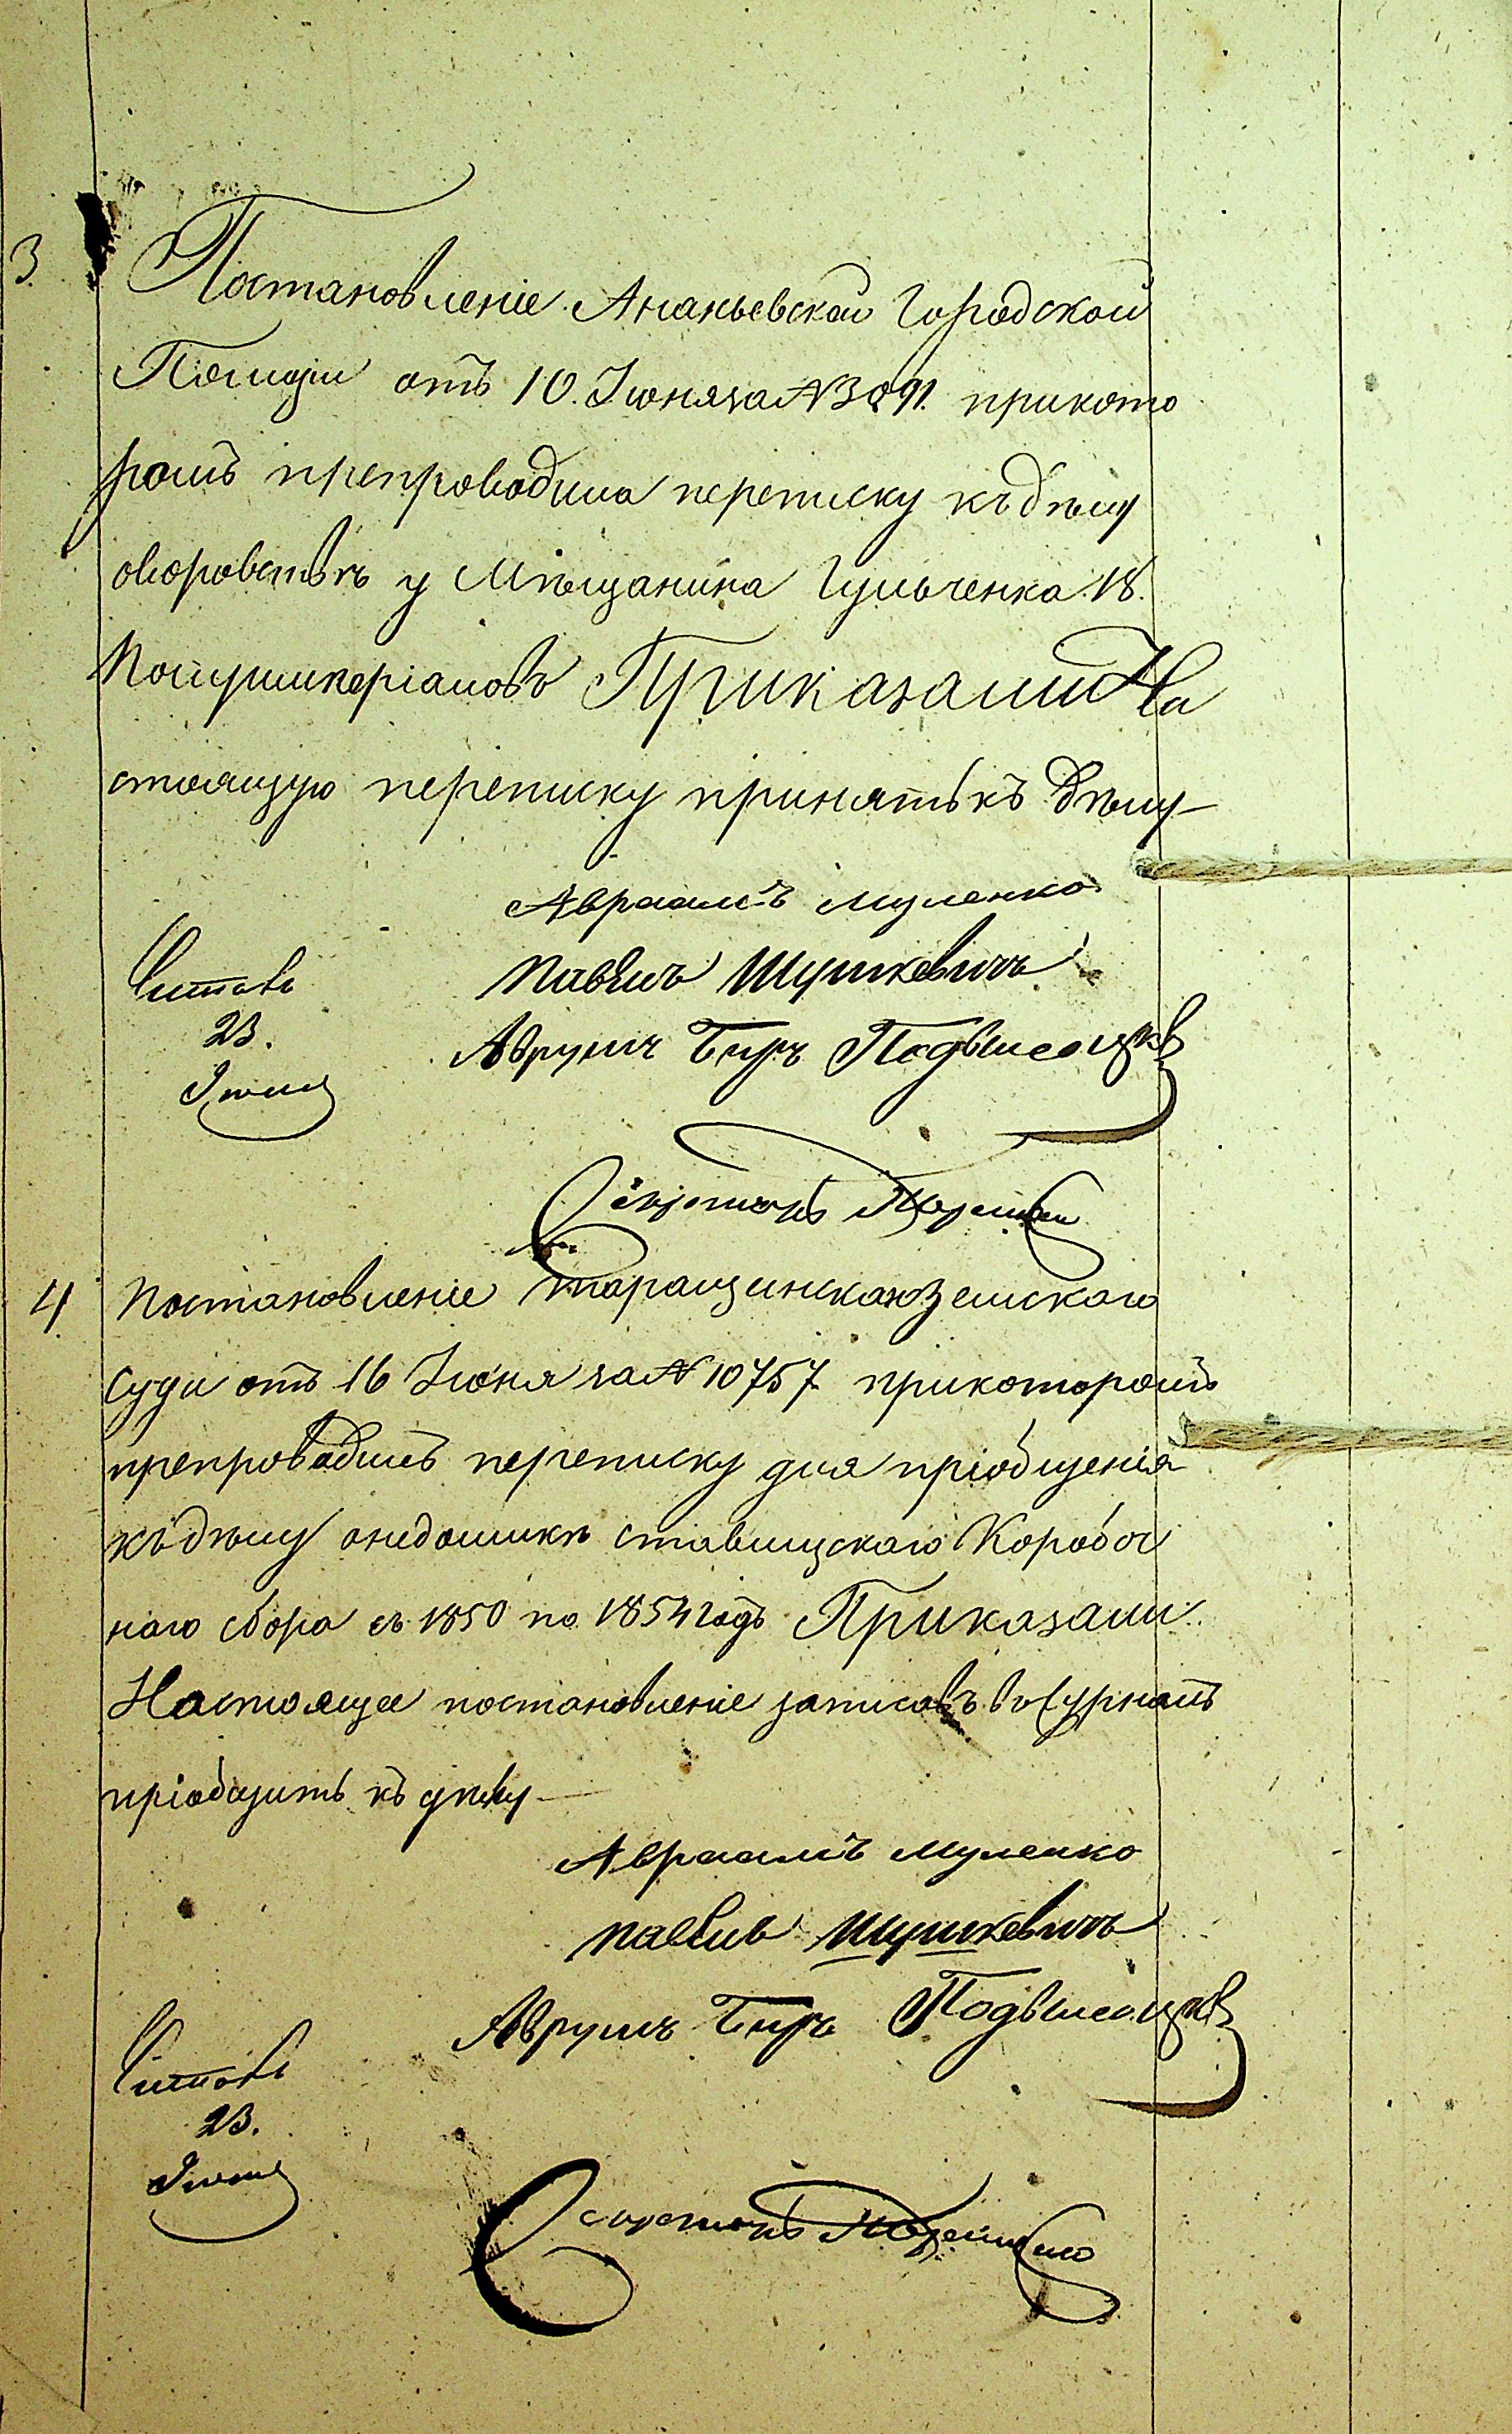 3. Постановленіе Ананьевской Городской
Полиціи отъ 10. Іюня за № 3091. прикото
ромъ препроводила переписку къ дѣлу
оворовствѣ у Мѣщанина Гульченка 18.
Полуимперіаловъ Приказали На
стоящую переписку принять къ дѣлу
Авраамъ Муленко
Павелъ Шушкевичъ
Читалъ
23.
Іюня
Аврумъ Беръ Подвысоцкій
Секретарь
4. Постановленіе Таращинскаго Земскаго
Суда отъ 16 Іюня за № 10757. прикоторомъ
препроводилъ переписку для пріобщенія
къ дѣлу онедоимкѣ ставищскаго Коробоч
наго сбора съ 1850 по 1854 годъ Приказали.
Настоящее постановленіе записавъ въ Журналъ
пріобщить къ дѣлу
Авраамъ Муленко
Павелъ Шушкевичъ
Аврумъ Беръ Подвысоцкій
Читалъ
23.
Іюня
Секретарь